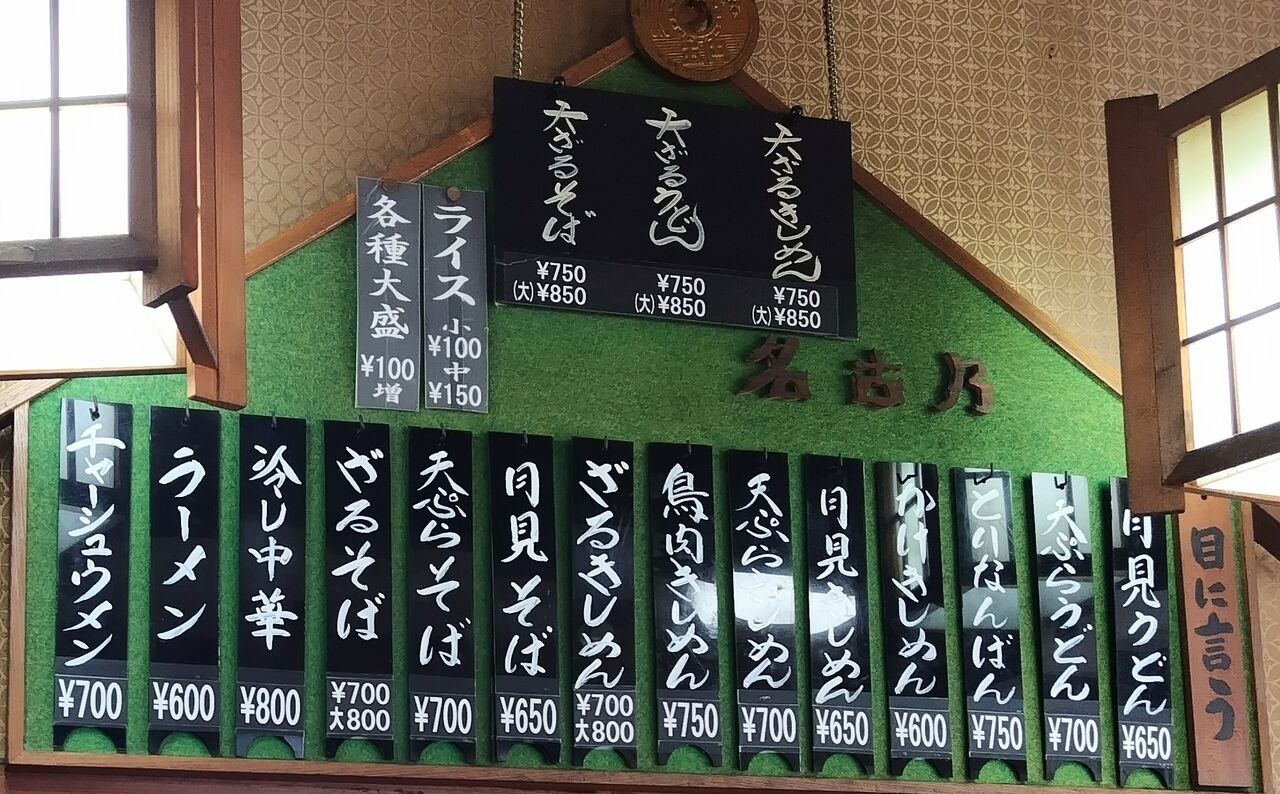 天ざるきしめん
¥750
(大)¥850
天ざるうどん
¥750
(大)¥850
天ざるそば
¥750
(大)¥850
ライス
小
¥100
中
¥150
各種大盛
¥100
増
名古乃
目に言う
月見うどん
¥650
天ぷらうどん
¥700
とりなんばん
¥750
かけきしめん
¥600
月見きしめん
¥650
天ぷらきしめん
¥700
鳥肉きしめん
¥750
ざるきしめん
¥700
大800
月見そば
¥650
天ぷらそば
¥700
ざるそば
¥700
大800
冷し中華
¥800
ラーメン
¥600
チャーシュウメン
¥700